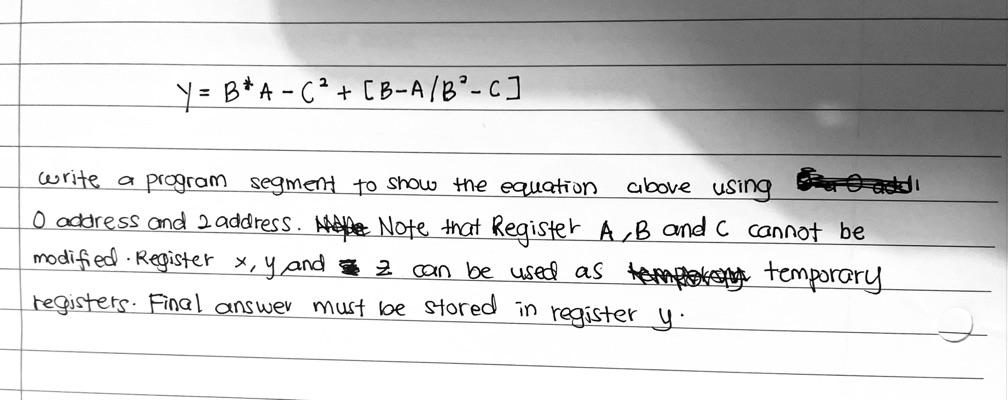 Y = B * A - C² + [B-A/B² - C]
write a program segment to show the equation above using
0 address and 2 address. Note that Register A, B and C cannot be
modified. Register x, y, and z can be used as temporary
registers. Final answer must be stored in register y.